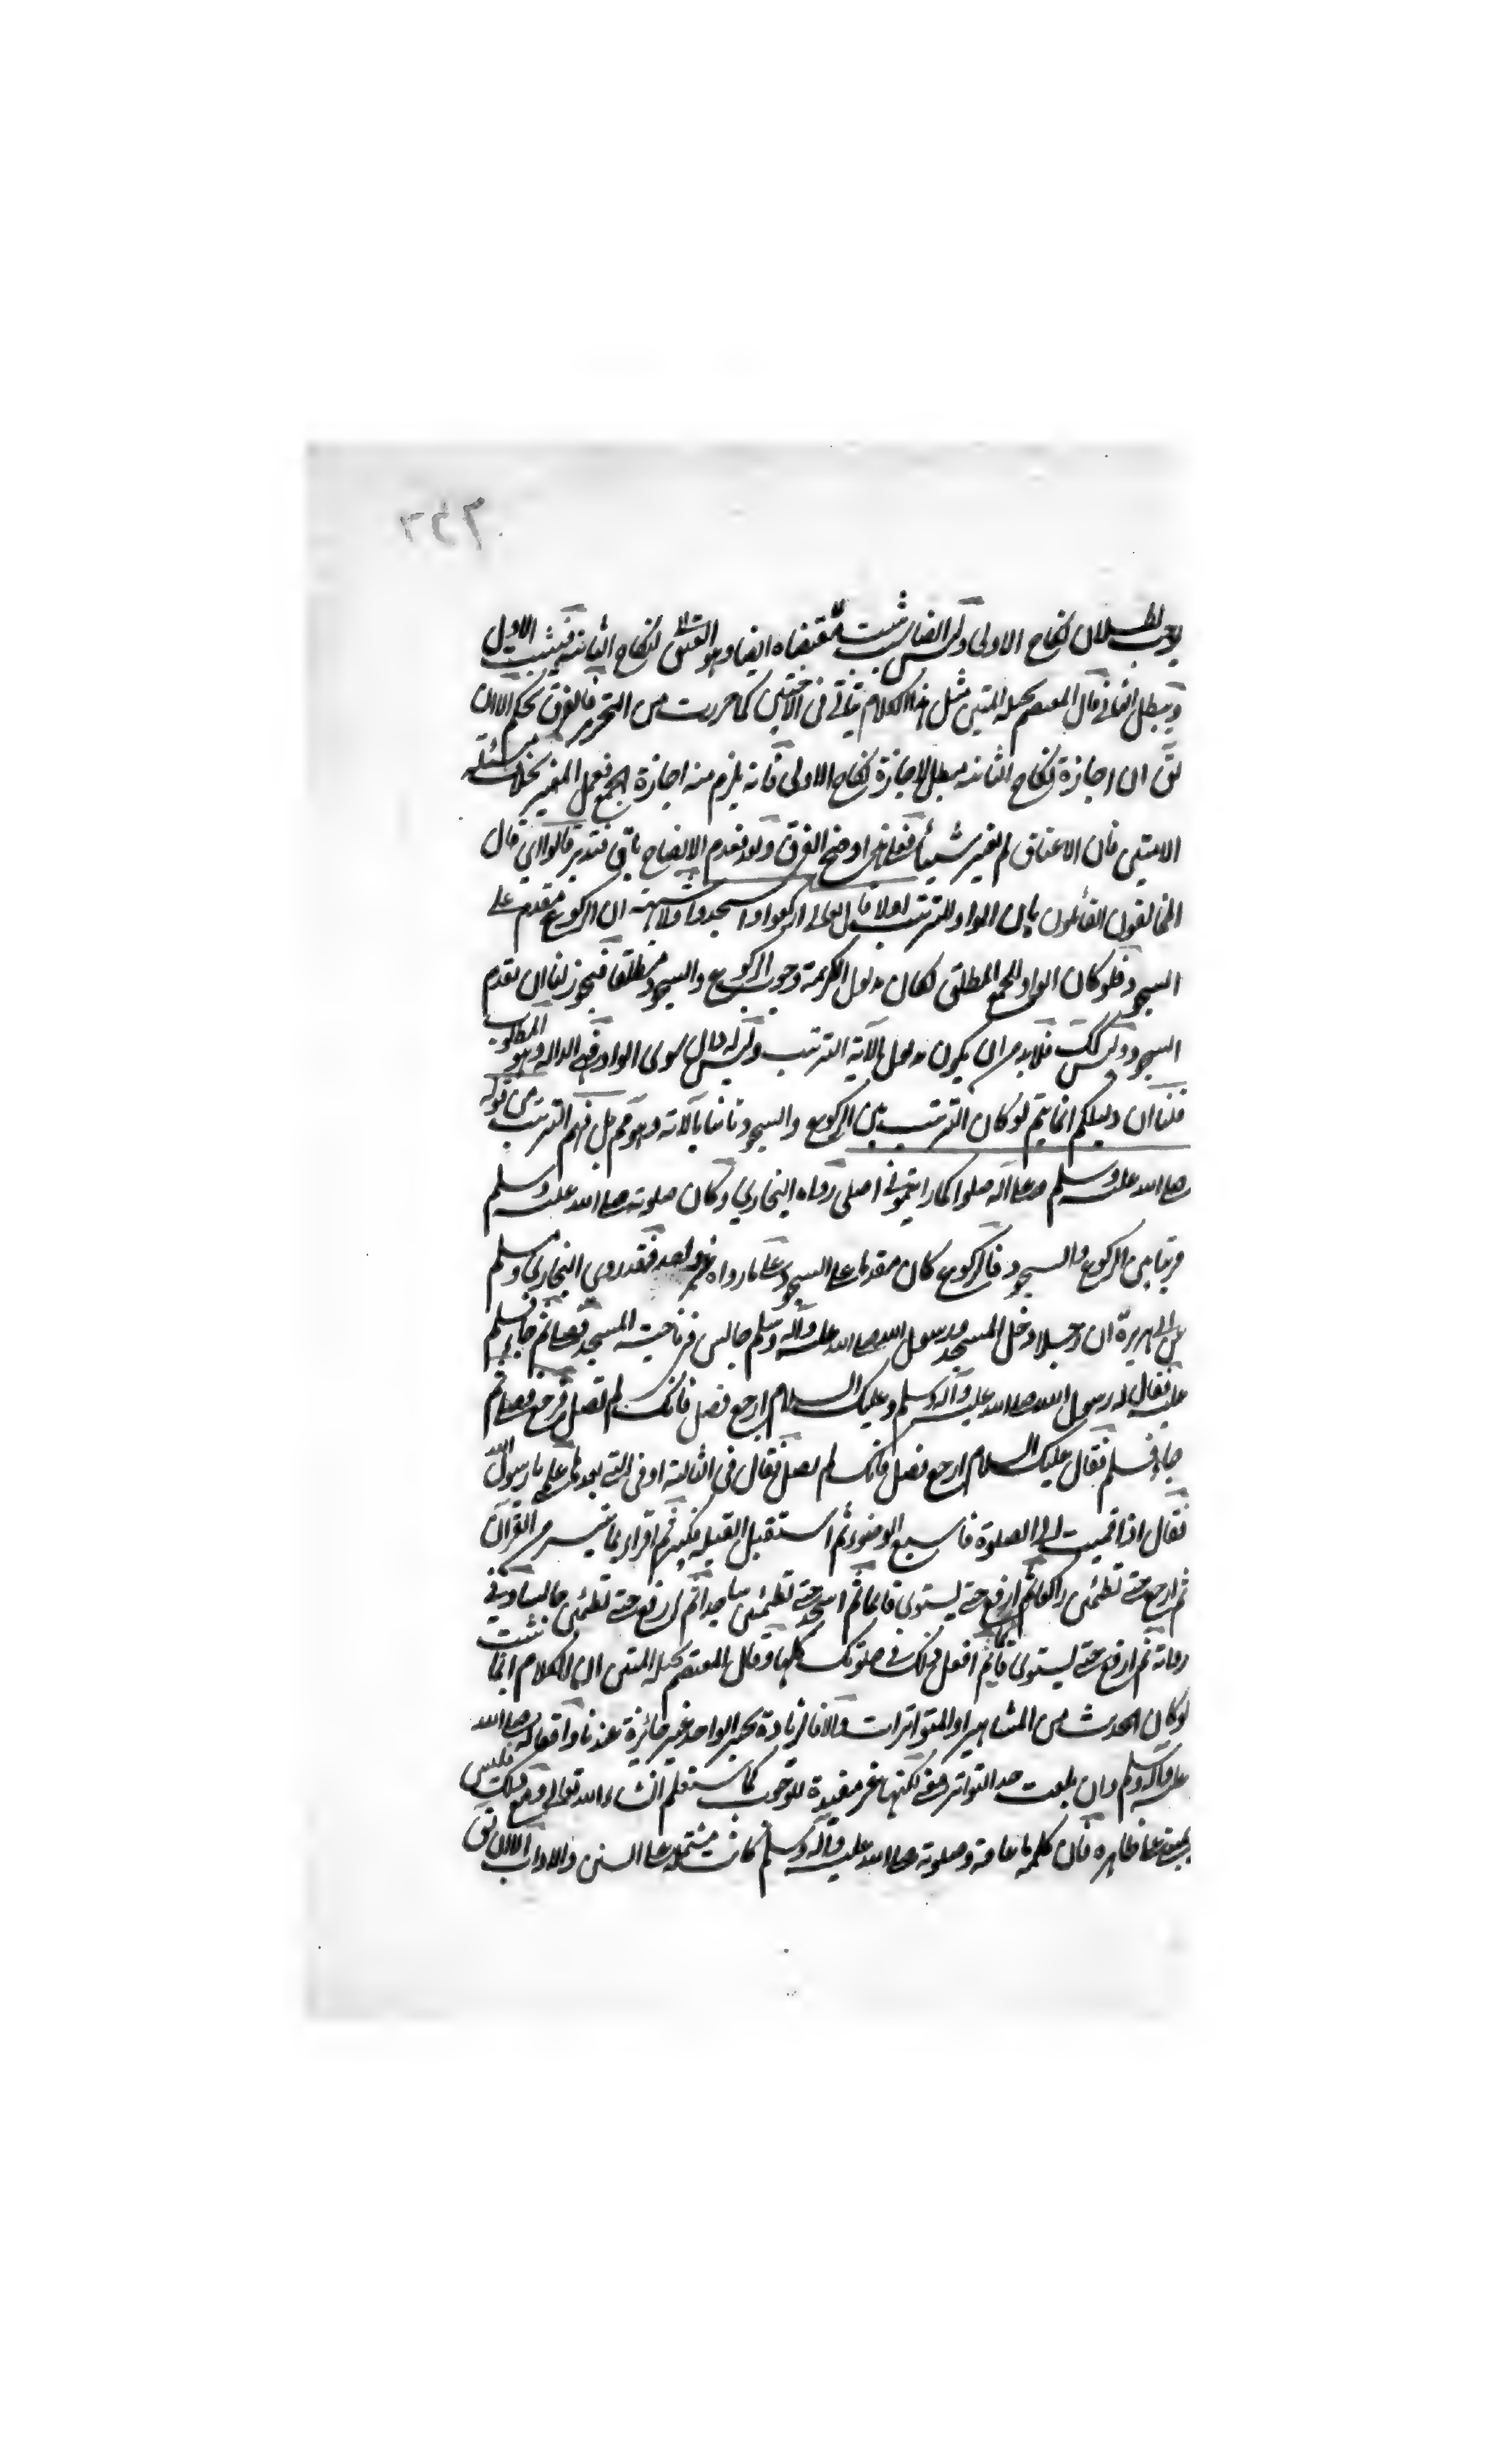 يوجب بطلان نكاح الاولى وليس ايضا يثبت مقتضاه ايضا وهو العتق لنكاح الثانية فيثبت الاول
ويبطل الثاني قال المعتصم بحبله المتين مثل هذا الكلام يتاتى في الاختين كما حررت من التحرير فالفرق تحكم الا ان
يق ان اجازة نكاح الثانية مبطل لاجازة نكاح الاولى فانه يلزم منه اجازة الجمع فعمل المغير بخلاف مسئلة
الامتين فان الاعتاق لم يغير شيئا فعلى هذا وضح الفرق وقد تقدم الايضاح باق فتدبر قالوا اي قال
المخالفون القائلون بان الواو للترتيب اولا قال تعالى اركعوا واسجدوا ولا شبهة ان الركوع مقدم على
السجود فلو كان الواو للجمع المطلق لكان مدلول الكريمة وجوب الركوع والسجود مطلقا فيجوز لنا ان نقدم
السجود وليس كك فلا بد من ان يكون مدلول الآية الترتيب وليس له دال سوى الواو فهي الدالة وهو المطلوب
قلنا ان دليلكم انما يتم لو كان الترتيب بين الركوع والسجود ثابتا بالآية وهو مم بل فهم الترتيب من قوله
صلى الله عليه وسلم وعلى آله صلوا كما رايتموني اصلي رواه البخاري وكان صلوته صلى الله عليه وسلم
مرتبا بين الركوع والسجود فالركوع كان مقدما على السجود على ما رواه فقد روى البخاري ومسلم
عن ابي هريرة ان رجلا دخل المسجد ورسول الله صلى الله عليه وآله وسلم جالس في ناحية المسجد فصلى ثم جاء فسلم
عليه فقال له رسول الله صلى الله عليه وآله وسلم وعليك السلام ارجع فصل فانك لم تصل فرجع فصلى ثم
جاء فسلم فقال عليك السلام ارجع فصل فانك لم تصل فقال في الثالثة او في التي بعدها علمني يا رسول الله
فقال اذا قمت الى الصلوة فاسبغ الوضوء ثم استقبل القبلة فكبر ثم اقرأ بما تيسر من القرآن
ثم اركع حتى تطمئن راكعا ثم ارفع حتى تستوي قائما ثم اسجد حتى تطمئن ساجدا ثم ارفع حتى تطمئن جالسا وفي
رواية ثم ارفع حتى تستوي قائما ثم افعل ذلك في صلوتك كلها وقال المعتصم بحبله المتين ان هذا الكلام انما يثبت
لو كان الحديث من المشاهير او المتواترات والا فالزيادة بخبر الواحد غير جائزة عندنا وافعاله صلى الله
عليه وآله وسلم وان بلغت حد التواتر فهي لكنها غير مفيدة للوجوب كما ستعلم انشاء الله تعالى ومع ذلك فليس
على ظاهره فان كلمة ما عامة وصلوته صلى الله عليه وآله وسلم كانت مشتملة على السنن والاداب الا ان يق